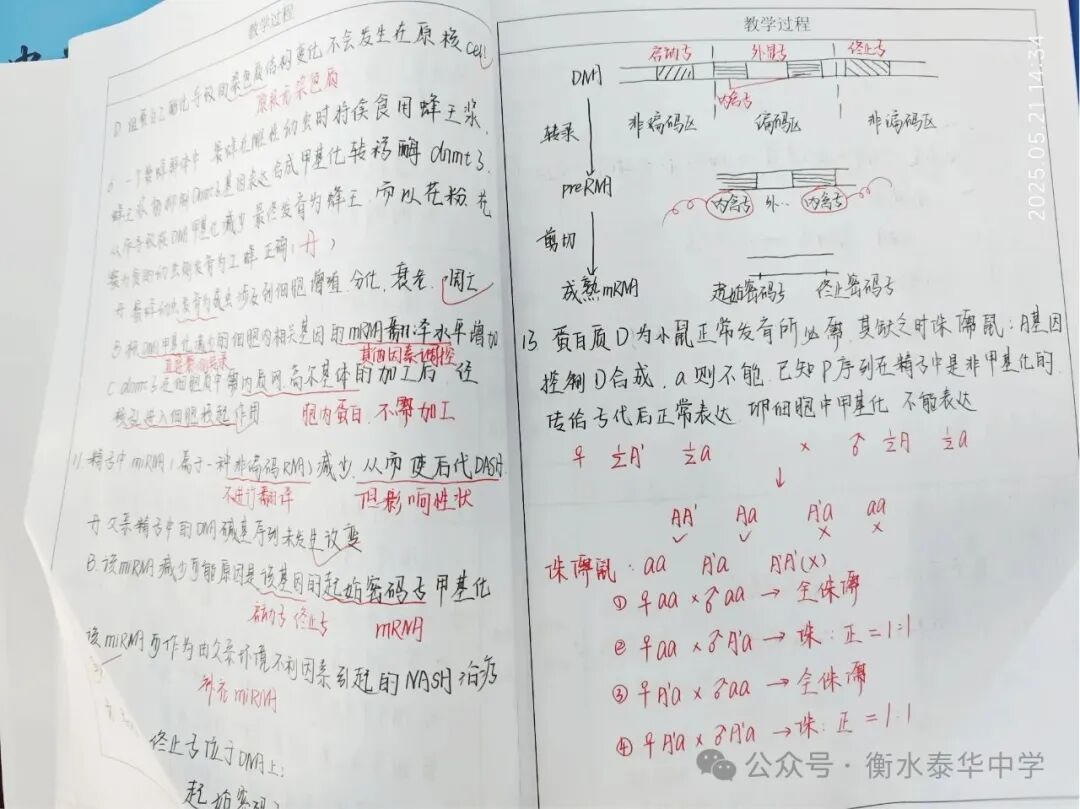 教学过程
D 组蛋白乙酰化导致的染色质结构变化不会发生在原核cell
原核无染色质
6 一个蜂群中 蜜蜂在 幼虫时持续食用蜂王浆,
蜂王浆 抑制Dnmt3基因表达合成甲基化转移酶 dnmt3,
从而导致 DNA甲基化减少 最终发育为蜂王, 而以花粉、花
蜜为食的幼虫则发育为工蜂 正确( A )
A 蜜蜂幼虫发育为成虫涉及到细胞增殖, 分化, 衰老, 凋亡
B 被DNA甲基化 的细胞内相关基因的mRNA翻译水平增加
直接影响转录 其他因素调控
C dnmt3在细胞质中需内质网、高尔基体的加工后, 经
核孔进入细胞核起作用 胞内蛋白, 不需加工
11. 精子中 miRNA (属于一种非编码RNA) 减少, 从而使后代DASH
不进行翻译 但影响性状
A 父亲精子中的DNA碱基序列未发生改变
B. 该miRNA减少可能原因是该基因的起始密码子甲基化
启动子 终止子 mRNA
该miRNA可作为由父亲环境不利因素引起的NASH治疗
补充miRNA
终止子位于DNA上;
起始密码子
教学过程
启动子 外显子 终止子
DNA
内含子
转录 非编码区 编码区 非编码区
preRNA
内含子 外… 内含子
剪切
成熟mRNA 起始密码子 终止密码子
13 蛋白质D为小鼠正常发育所必需, 其缺乏时侏儒鼠: A基因
控制D合成, a则不能, 已知P序列在精子中是非甲基化的,
传给子代后正常表达 卵细胞中甲基化 不能表达
♀ ½A' ½a × ♂ ½A ½a
AA' Aa A'a aa
侏儒鼠: aa A'a A'A'(×)
① ♀aa × ♂aa → 全侏儒
② ♀aa × ♂A'a → 侏: 正 = 1:1
③ ♀A'a × ♂aa → 全侏儒
④ ♀A'a × ♂A'a → 侏: 正 = 1:1
2025.05.21 14:34
公众号 · 衡水泰华中学